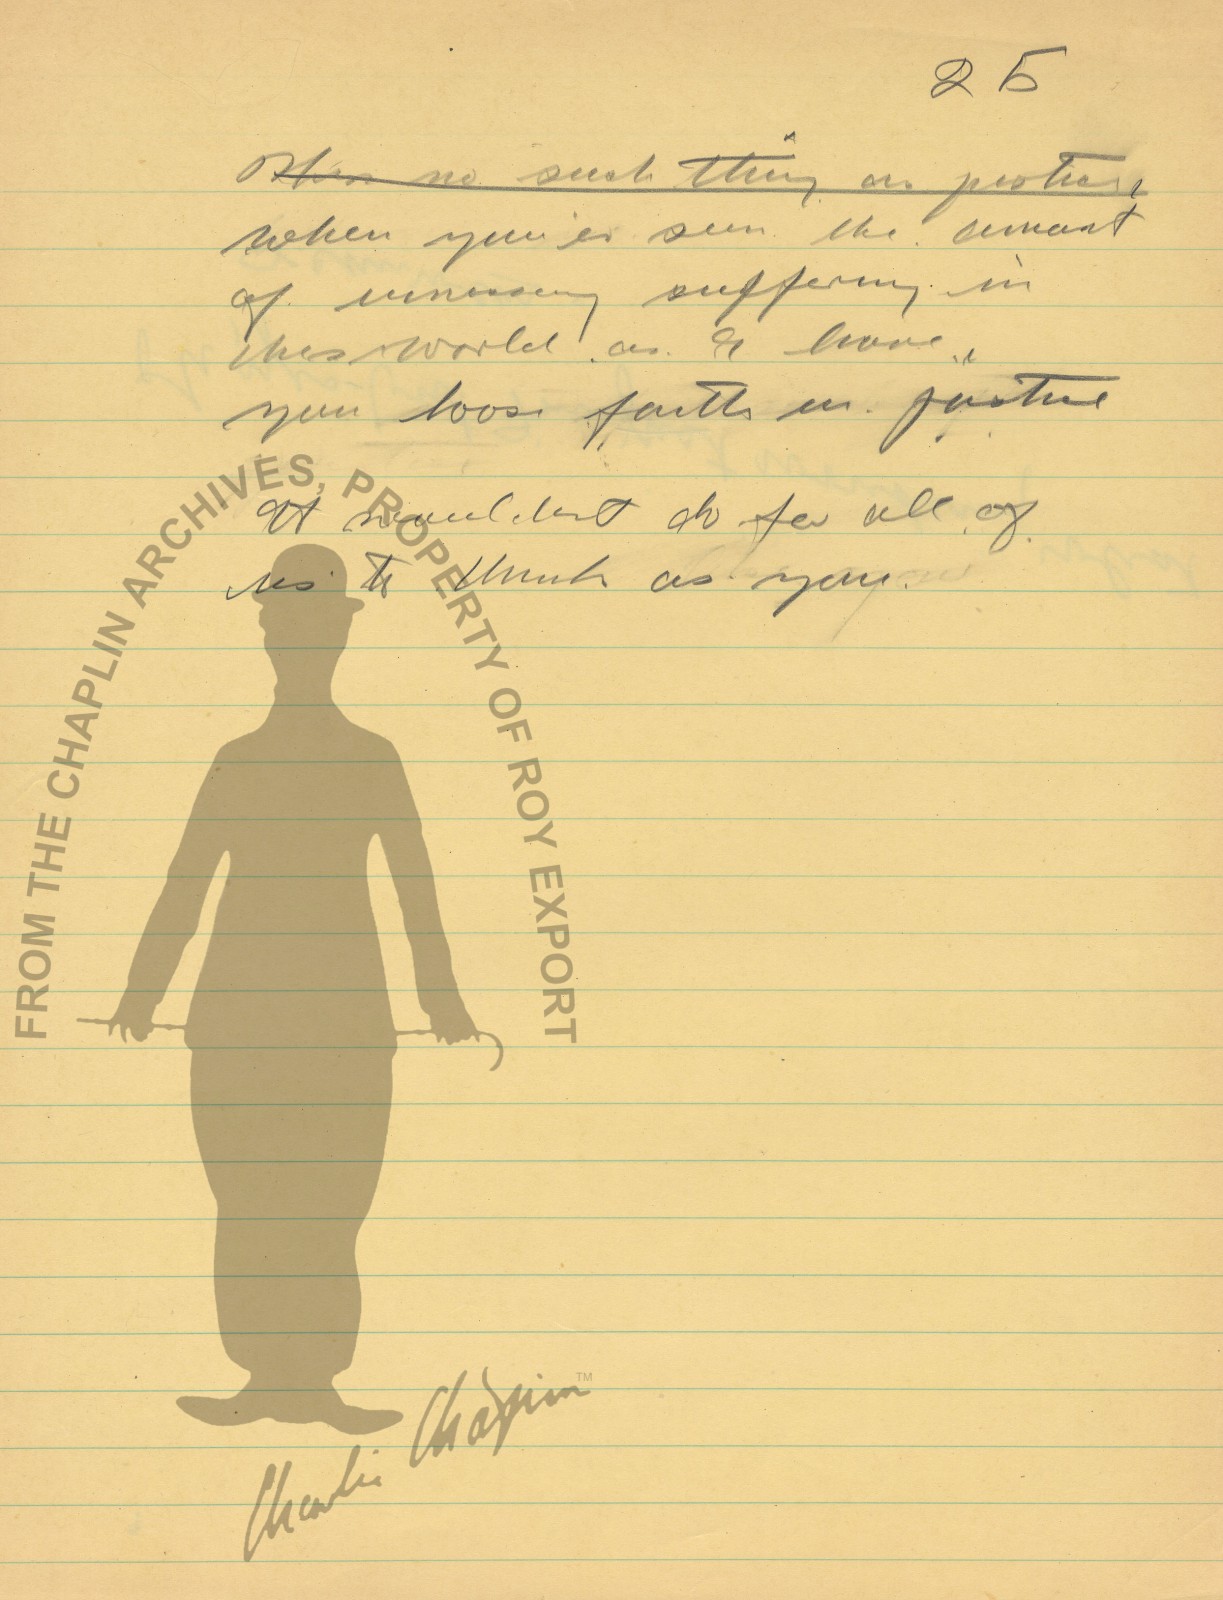 25
Theres no such thing as justice
when you've seen the amount
of unnessary suffering in
this world as I have,
you loose faith in justice
It wouldent do for all of
us to think as you.
FROM THE CHAPLIN ARCHIVES, PROPERTY OF ROY EXPORT
Charlie Chaplin TM